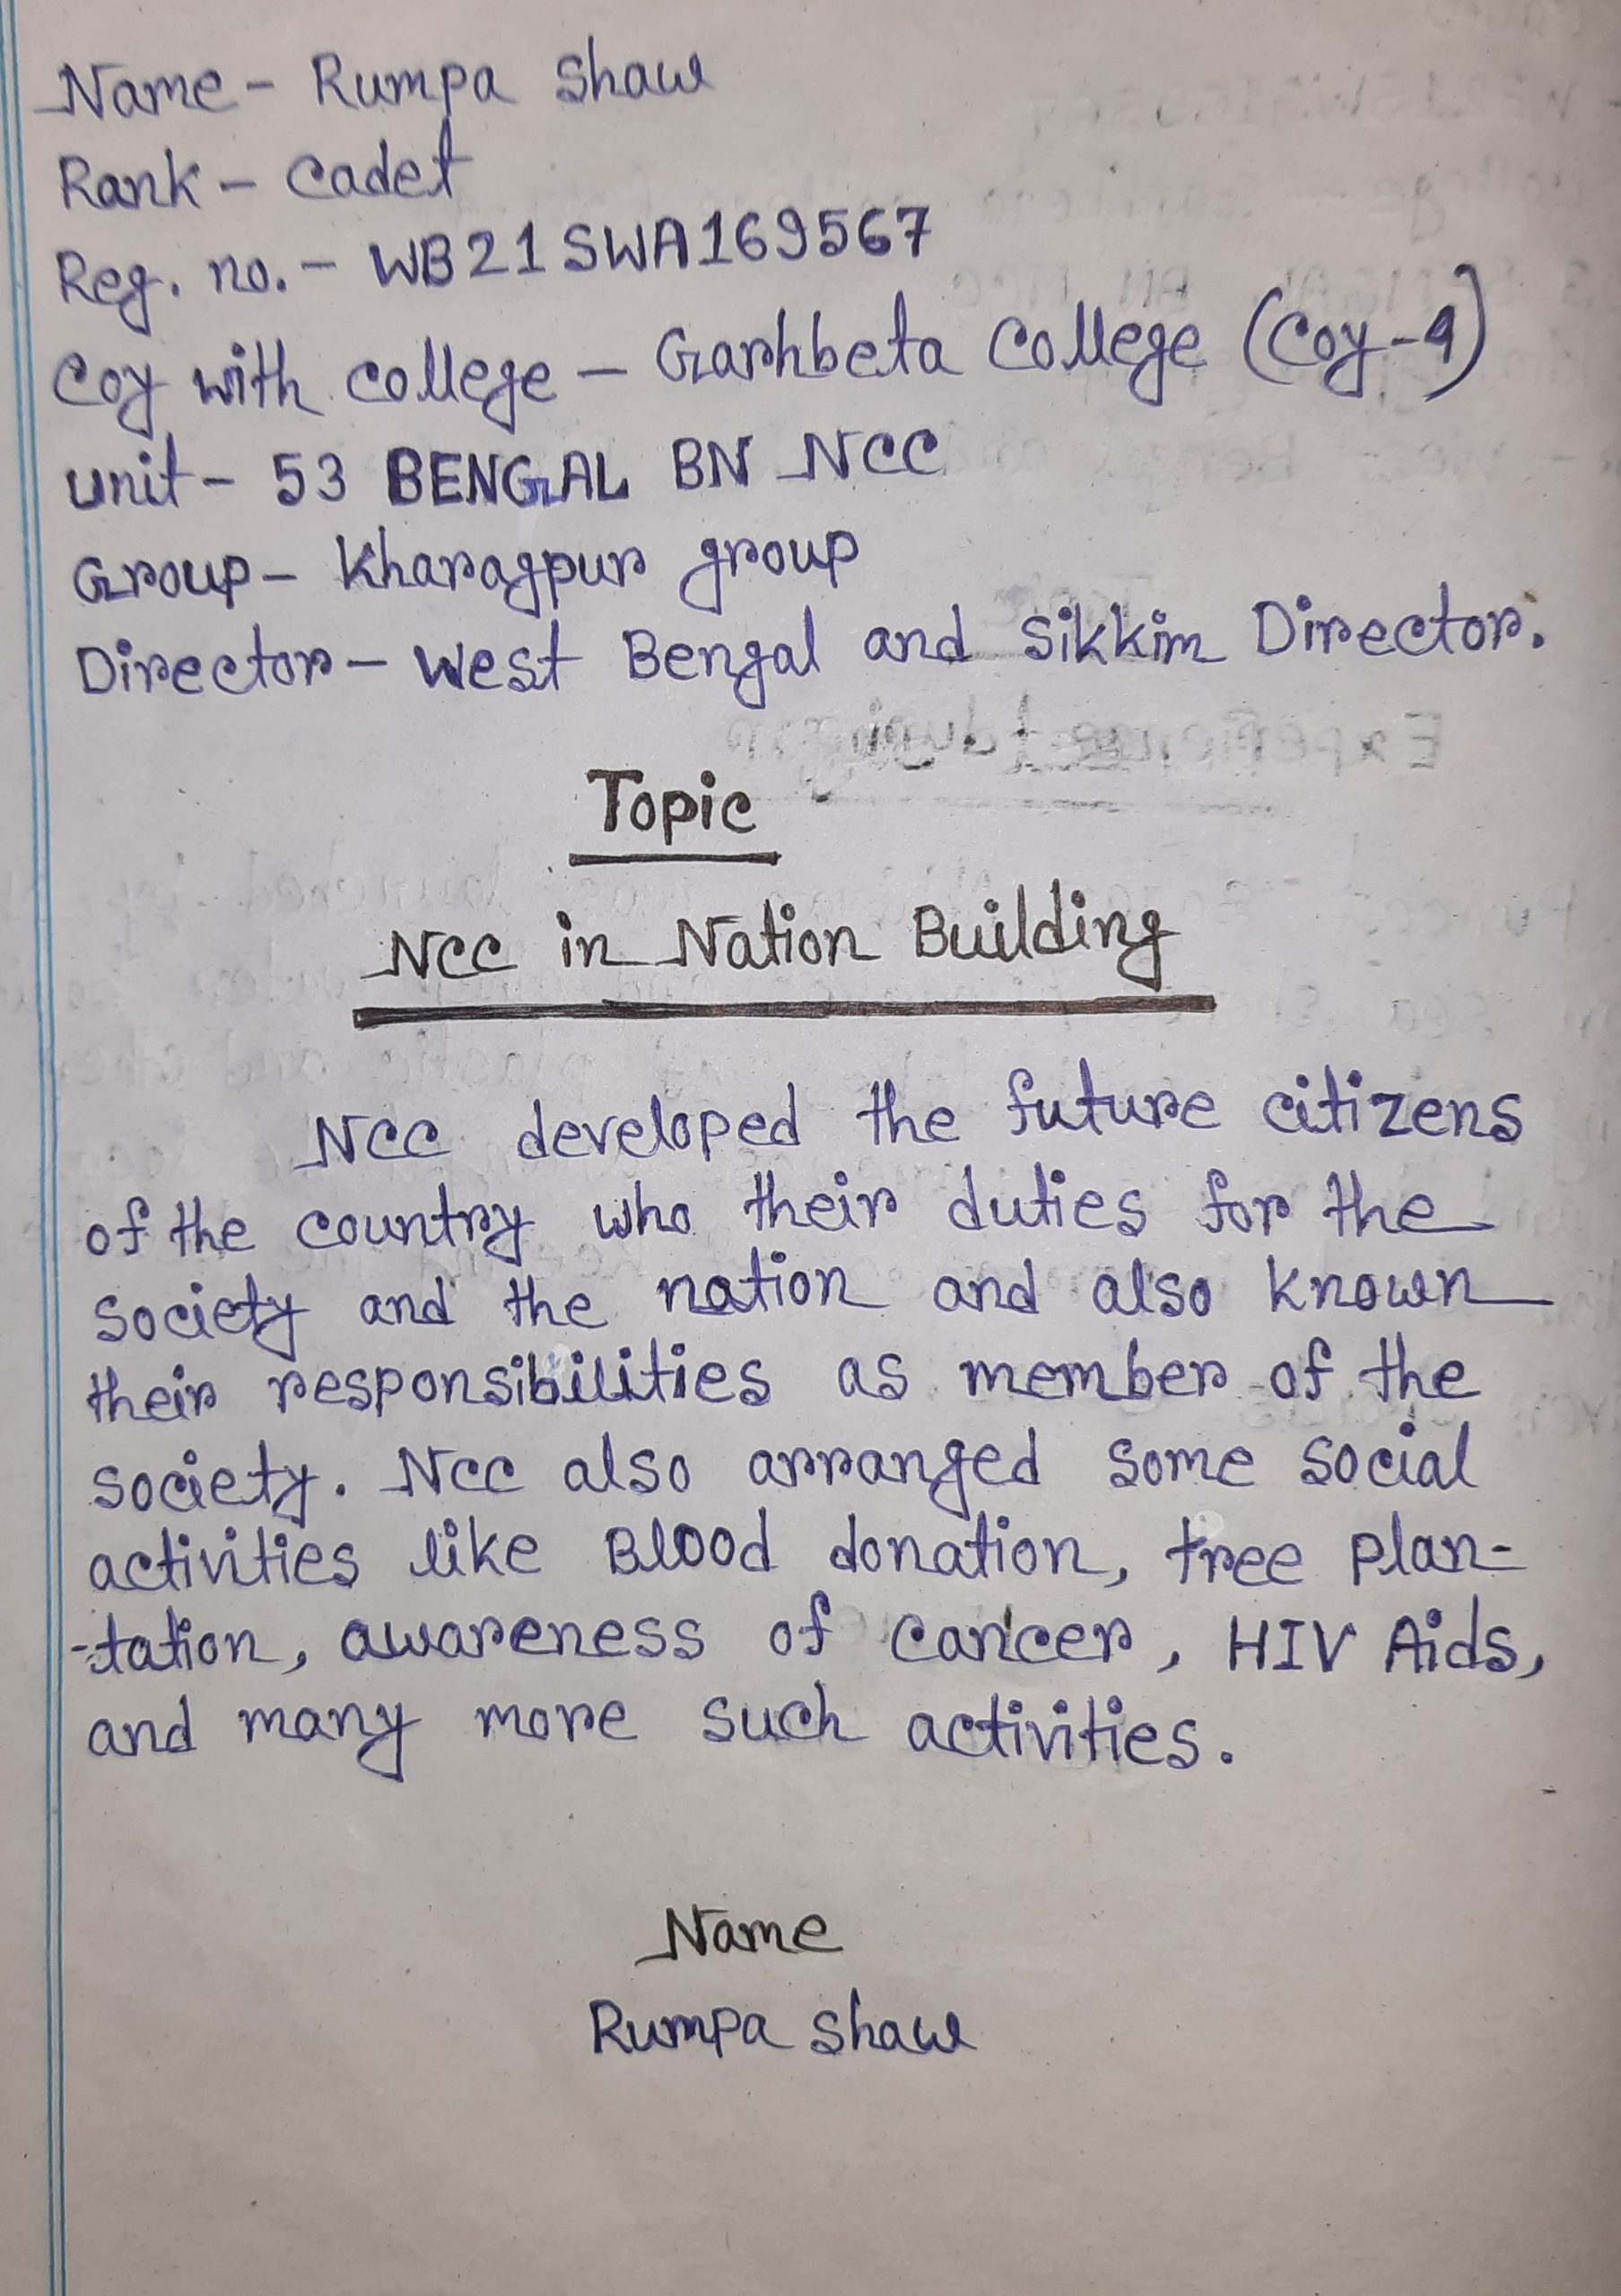 Name - Rumpa Shaw
Rank - Cadet
Reg. no. - WB21SWA169567
Coy with college - Garhbeta College (Coy-4)
unit - 53 BENGAL BN NCC
Group - Kharagpur group
Director - West Bengal and Sikkim Director.
Topic
NCC in Nation Building
NCC developed the future citizens
of the country who their duties for the
society and the nation and also known
their responsibilities as member of the
society. NCC also arranged some social
activities like Blood donation, tree plan-
-tation, awareness of cancer, HIV Aids,
and many more such activities.
Name
Rumpa Shaw